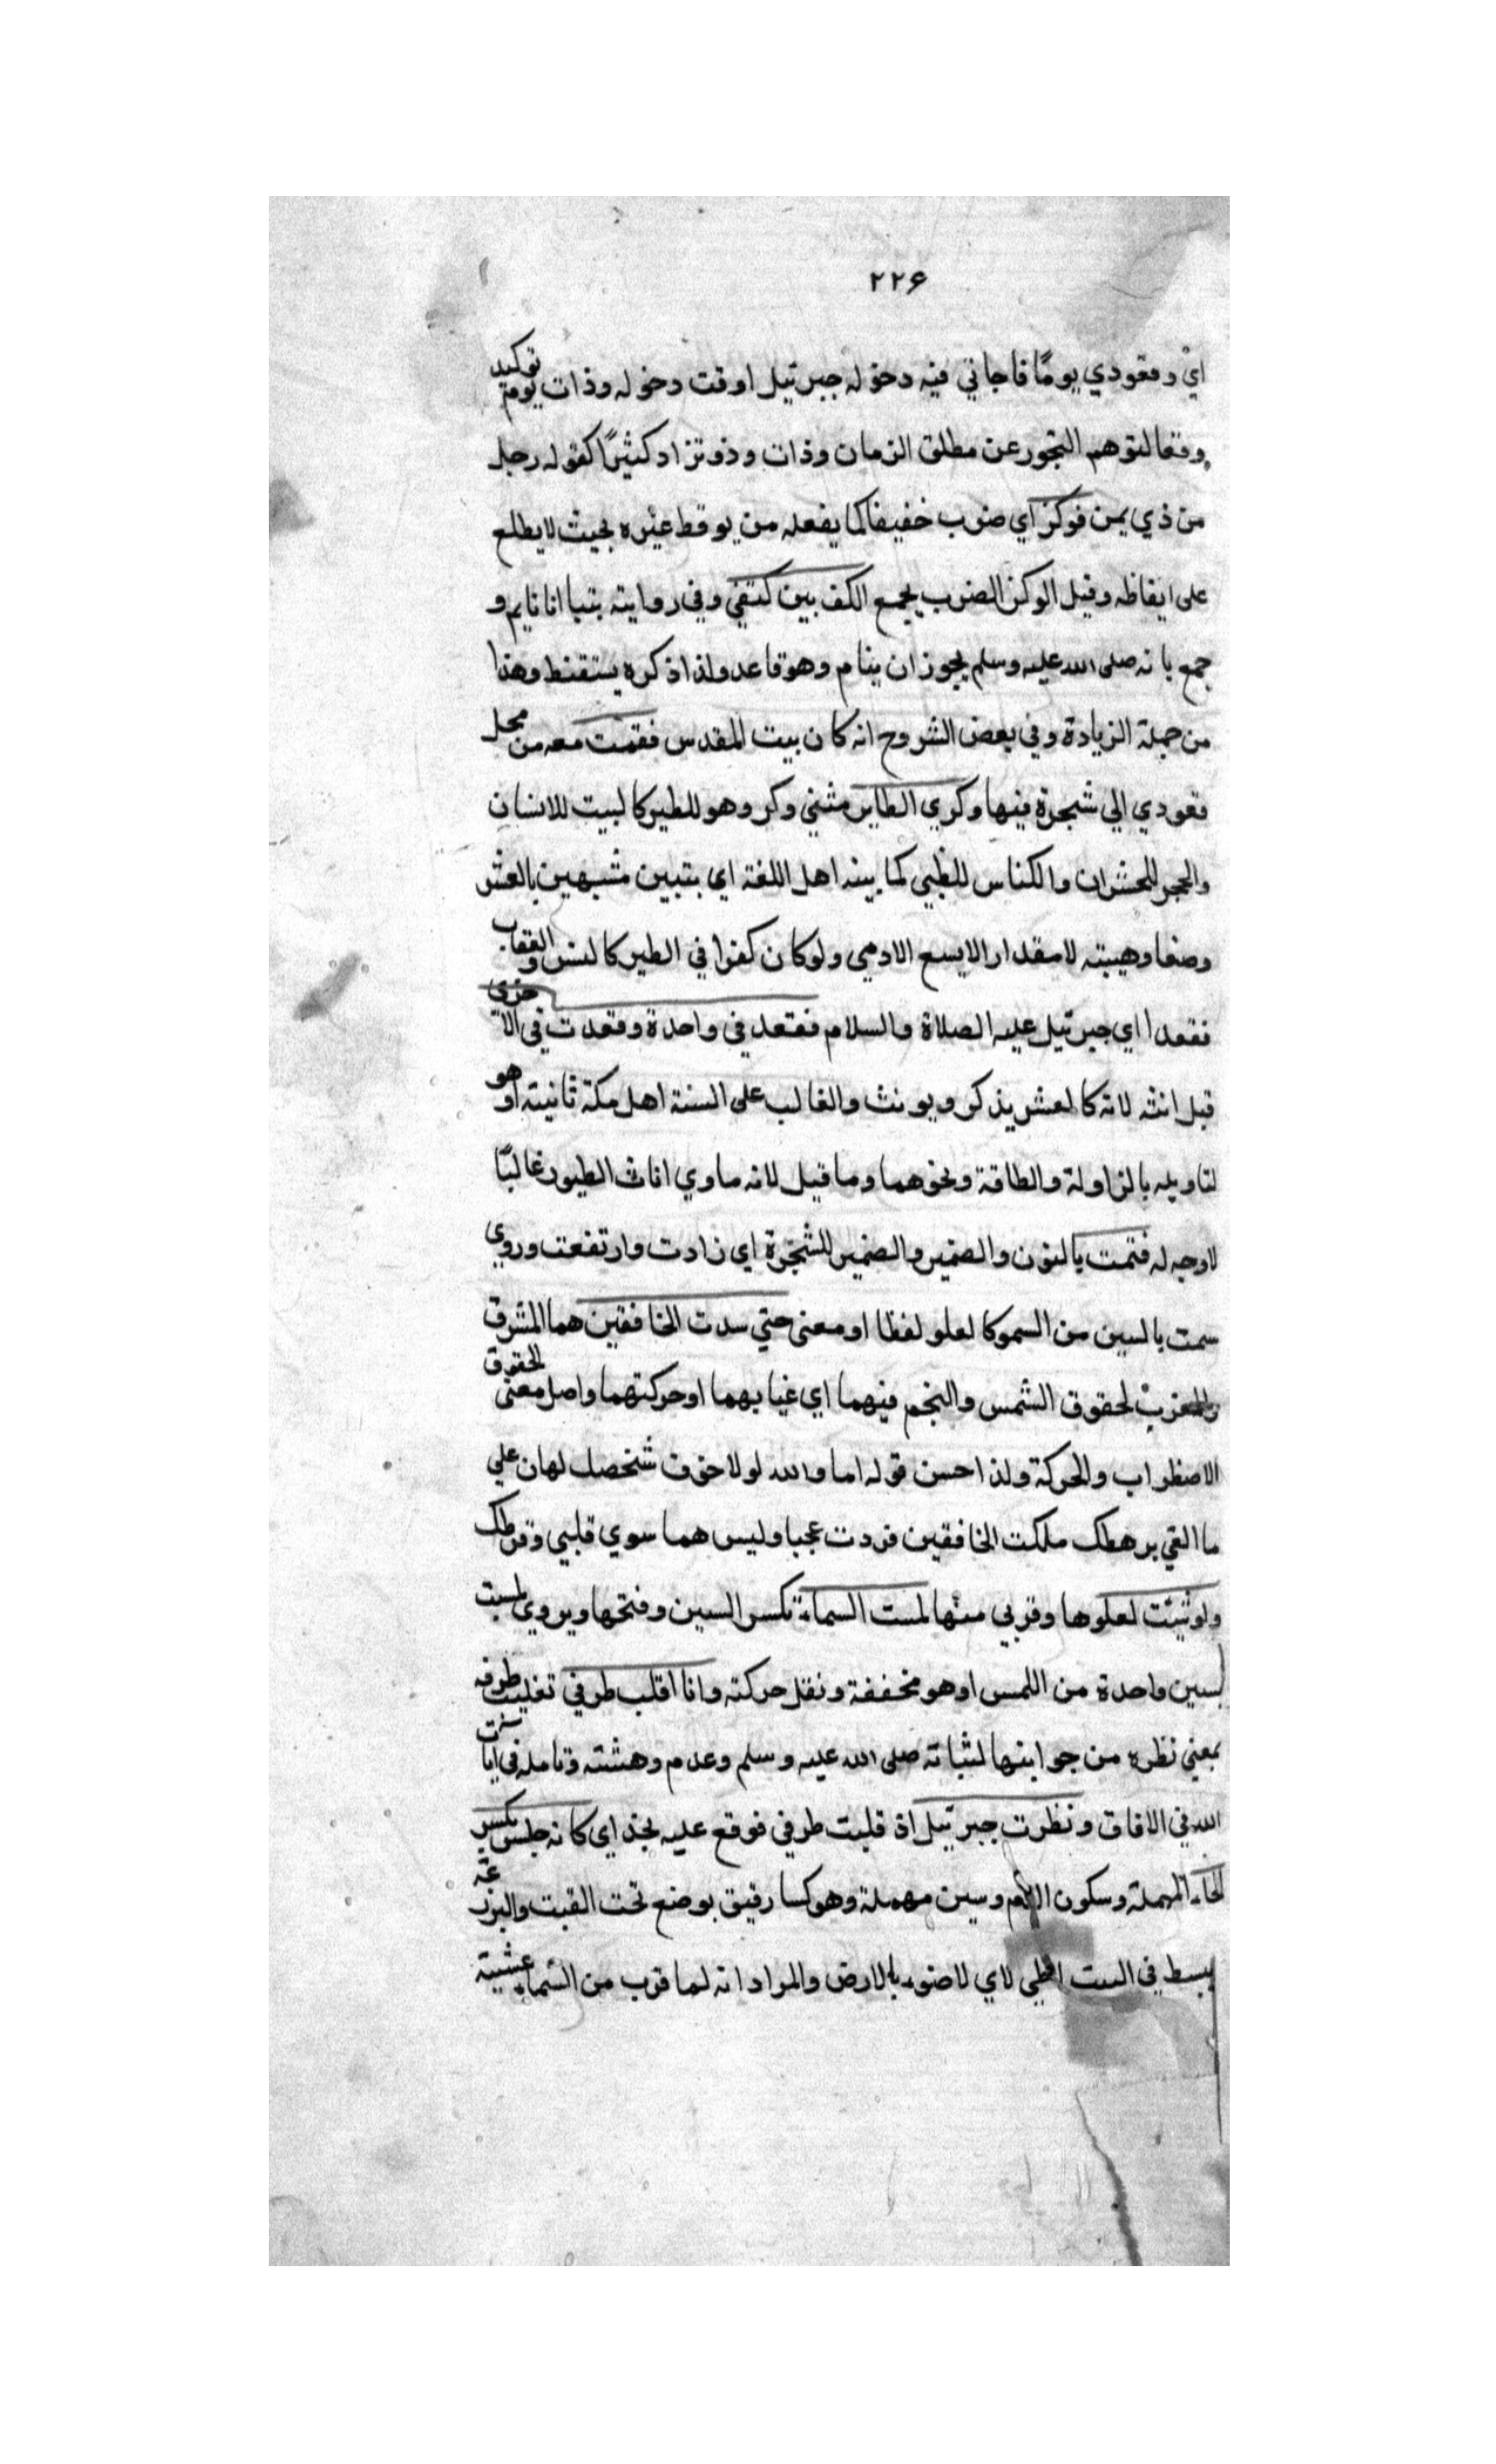 ٢٢۶
اي وقعودي يومًا فاجاني فيه دخوله جبرئيل اوقت دخوله وذات يوم توكيد
وقعا لتوهم التجوز عن مطلق الزمان وذات وذو تزاد كثيرًا كقوله رجل
من ذي يمن فوكز اي ضرب خفيفا كما يفعله من يوقظ غيره بحيث لا يطلع
على ايقاظه وقيل الوكز الضرب بجمع الكف بين كتفي وفي رواية بتيا انا نايم و
جمع بانه صلى الله عليه وسلم يجوز ان ينام وهو قاعد ولذا ذكره يستقنط وهذا
من جملة الزيادة وفي بعض الشروح انه كان ببيت المقدس فقمت معه من محل
قعودي الي شجرة فيها وكري الطاير مثني وكر وهو للطير كالبيت للانسان
والحجر للحشران والكناس للظبي كما بينه اهل اللغة اي بتبين مشبهين بالعش
وصفا وهيبته لا مقدار الايسع الادمي ولو كان كفرا في الطير كالنسر والعقاب
فقعدا اي جبرئيل عليه الصلاة والسلام فقعد في واحدة وقعدت في الاخري
قبل انثه لانه كالعش يذكر ويونث والغالب على السنة اهل مكة ثانيته او هو
لتاويله بالزاولة والطاقة ونحوهما وما قيل لانه ماوي اناث الطيور غالبًا
لا وجه له فتمت بالنون والضمير والضمير للشجرة اي زادت وارتفعت وروي
سمت بالسين من السمو كالعلو لفظا او معنى حتي سدت الخافقين هما المشرق
والمغرب لحقوق الشمس والنجم فيهما اي غيابهما او حركتهما واصل معنى الحقوق
الاضطراب والحركة ولذا احسن قوله اما والله لولا خوف شخصل لهان علي
ما القي برهطك ملكت الخافقين فزدت عجبا وليس هما سوي قلبي وقرطك
ولو شئت لعلوها وقربي منها لمست السماء بكسر السين وفتحها ويروي لمست
بسين واحدة من اللمس او هو مخففة ونقل حركته وانا اقلب طرفي تقليب طرفه
بمعني نظره من جوابنها لثباته صلى الله عليه وسلم وعدم دهشته وتامله في ايات
الله في الافاق ونظرت جبرئيل اذ قلبت طرفي فوقع عليه بخذ اي كانه جلس بكسر
الحاء المهملة وسكون اللام وسين مهملة وهو كسا رقيق بوضع تحت القبت والبرذعة
يبسط في البيت لاي لاضوء بالارض والمراد انه لما قرب من السماء غشيته